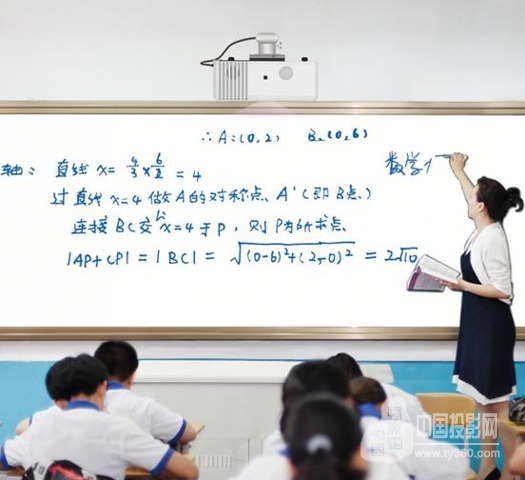 ∴ A:(0,2) B:(0,6)
轴: 直线 x = 4/3 × 6/2 = 4
数学
过直线 x=4 做A的对称点、A'(即B点、)
连接BC交 x=4于P, 则P为所求点、
|AP+CP| = |BC| = √((0-6)²+(2-0)²) = 2√10
中国投影网
www.ty360.com